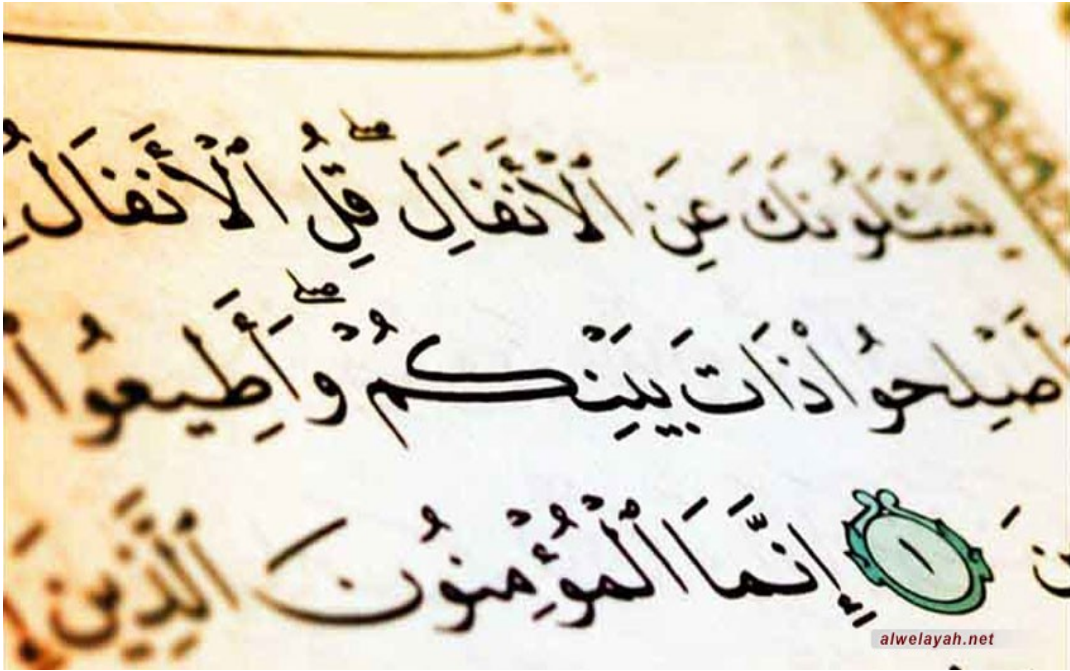 يَسْـَٔلُونَكَ عَنِ ٱلْأَنفَالِۖ قُلِ ٱلْأَنفَالُ
أَصْلِحُوا۟ ذَاتَ بَيْنِكُمْۖ وَأَطِيعُوا۟
١ إِنَّمَا ٱلْمُؤْمِنُونَ ٱلَّذِينَ
alwelayah.net